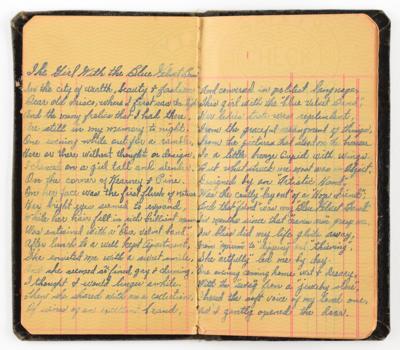 The Girl With the Blue Velvet Band
In the city of wealth, beauty & fashion
Dear old Frisco, where I first saw the light
And the many frolics that I had there,
Are still in my memory to night.
One evening while out for a ramble,
Here or there without thought or design,
I chanced on a girl tall and slender,
On the corner of Kearney & Pine.
On her face was the first flush of nature
Her bright eyes seemed to expand
While her hair fell in rich brilliant
Was entwined with a "blue velvet band"
After lunch to a well kept apartment,
She invited me with a sweet smile,
And she seemed so refined, gay & charming,
I thought I would linger awhile.
Then she shared with me a collection,
Of wines of an excellent brand,
And conversed in politest language,
This girl with the "blue velvet band."
from the graceful arrangement of things,
From the pictures that stood on the bureau
To a little bronze Cupid with wings.
But what struck me most was an object,
Designed by an artistic hand,
'Twas the costly "lay out" of a "Hop fiend",
And that fiend was my "Blue Velvet Band"
months since that
did my life glide away,
from "opium" to "thieving"
She artfully led me by day
One evening coming home wet & dreary,
With the "swag" from a "jewelry store",
I heard the soft voice of my loved one,
As I gently opened the door.